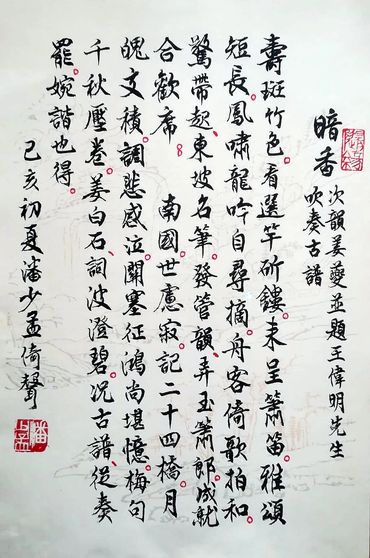 暗香
次韻姜夔並題王偉明先生
吹奏古譜
壽斑竹色。看選竿斫鏤。來呈簫笛。雅頌
短長。鳳嘯龍吟自尋摘。舟客倚歌拍和。
驚帶起、東坡名筆。發管韻、弄玉簫郎。成就
合歡席。 南國。世慮寂。記二十四橋。月
魄文積。調悲感泣。關塞征鴻尚堪憶。梅句
千秋壓卷。姜白石、詞波澄碧。況古譜、從奏
罷。婉諧也得。
己亥初夏潘少孟倚聲